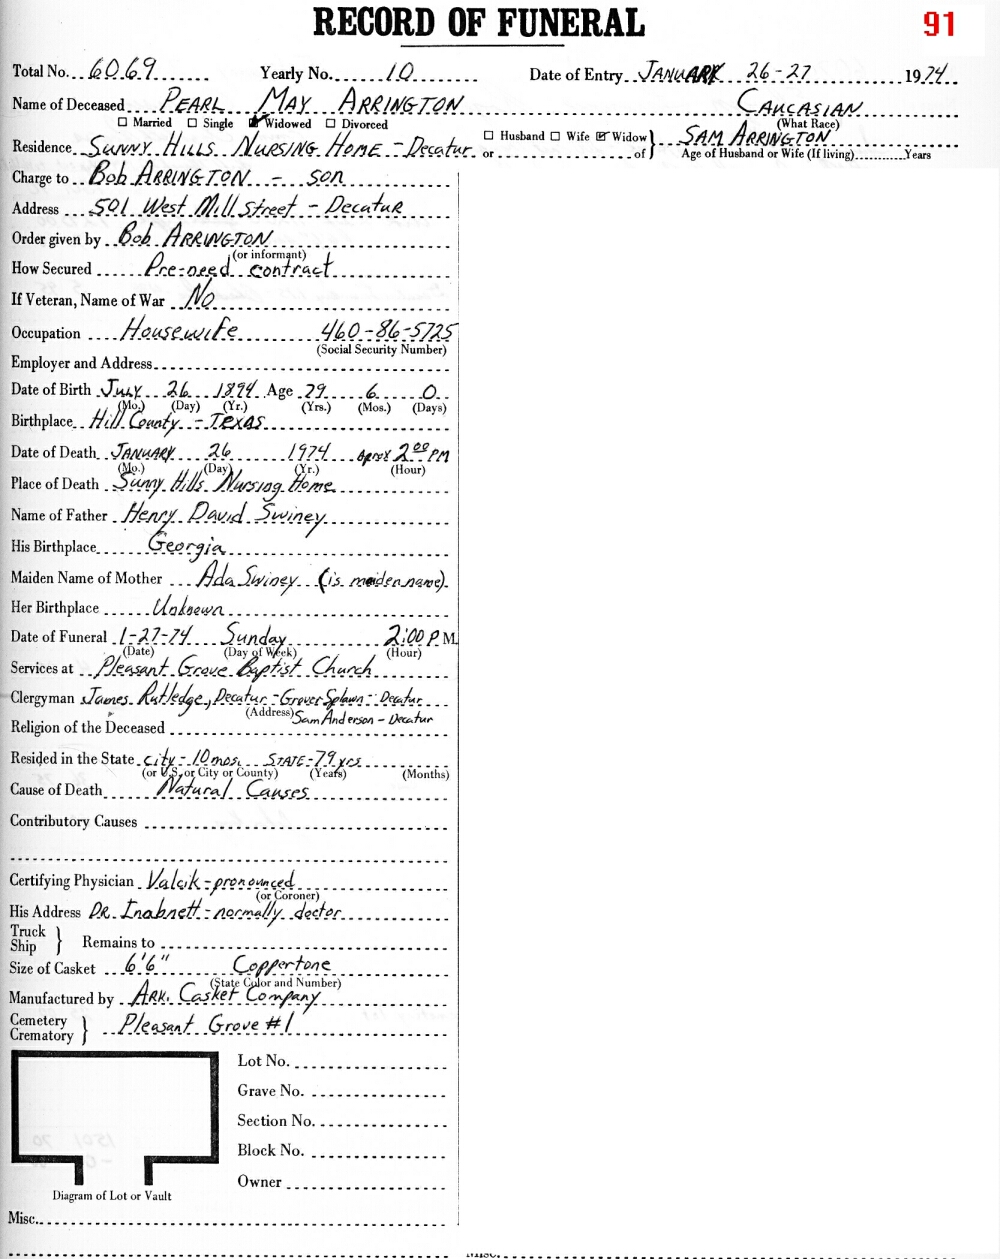 RECORD OF FUNERAL 91
Total No. 6069 Yearly No. 10 Date of Entry JANUARY 26-27 1974
Name of Deceased PEARL MAY ARRINGTON CAUCASIAN
☐ Married ☐ Single ☑ Widowed ☐ Divorced (What Race)
☐ Husband ☐ Wife ☑ Widow } SAM ARRINGTON
Residence SUNNY HILLS NURSING HOME - Decatur or of Age of Husband or Wife (If living) Years
Charge to Bob ARRINGTON - son
Address 501 West Mill Street - Decatur
Order given by Bob ARRINGTON
(or informant)
How Secured Pre-need contract
If Veteran, Name of War No
Occupation Housewife 460-86-5725
(Social Security Number)
Employer and Address
Date of Birth July 26 1894 Age 79 6 0
(Mo.) (Day) (Yr.) (Yrs.) (Mos.) (Days)
Birthplace Hill County - TEXAS
Date of Death JANUARY 26 1974 aprox 2:00 PM
(Mo.) (Day) (Yr.) (Hour)
Place of Death Sunny Hills Nursing Home
Name of Father Henry David Swiney
His Birthplace Georgia
Maiden Name of Mother Ada Swiney (is maiden name)
Her Birthplace Unknown
Date of Funeral 1-27-74 Sunday 2:00 P.M.
(Date) (Day of Week) (Hour)
Services at Pleasant Grove Baptist Church
Clergyman James Rutledge, Decatur - Grover Splawn - Decatur
(Address) Sam Anderson - Decatur
Religion of the Deceased
Resided in the State city - 10 mos. STATE - 79 yrs
(or U.S. or City or County) (Years) (Months)
Cause of Death Natural Causes
Contributory Causes
Certifying Physician Valcik - pronounced
(or Coroner)
His Address DR. Inabnett - normally doctor
Truck
Ship } Remains to
Size of Casket 6'6" Coppertone
(State Color and Number)
Manufactured by ARK. Casket Company
Cemetery
Crematory } Pleasant Grove #1
Lot No.
Grave No.
Section No.
Block No.
Owner
Diagram of Lot or Vault
Misc.